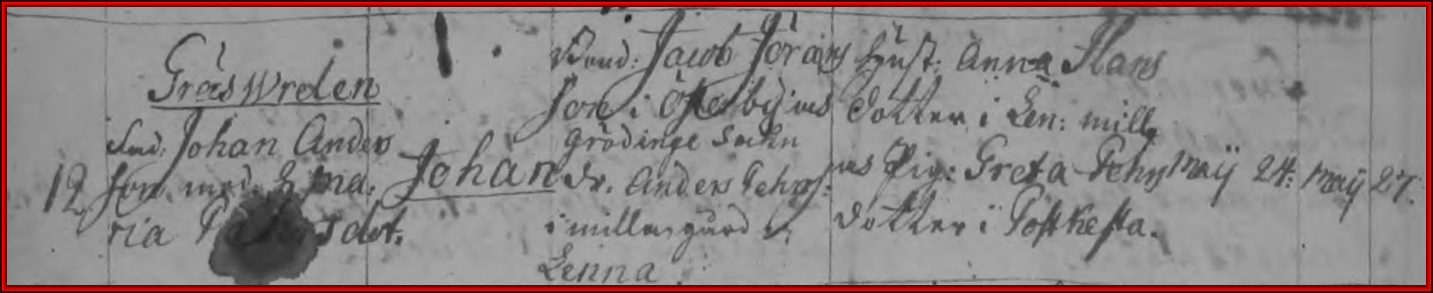 Gräswreten
Johan Anders
12 son med H. Ma,
ria dot.
Johan
Bond: Jacob Jörans
son i Österby
Grödinge Sochn
dr. Anders Pehrs:
i millangård
Lenna
Hust: Anna Hans
dotter i Len: mill
Pig: Greta Pehrs
dotter i
Maij 24: Maij 27.